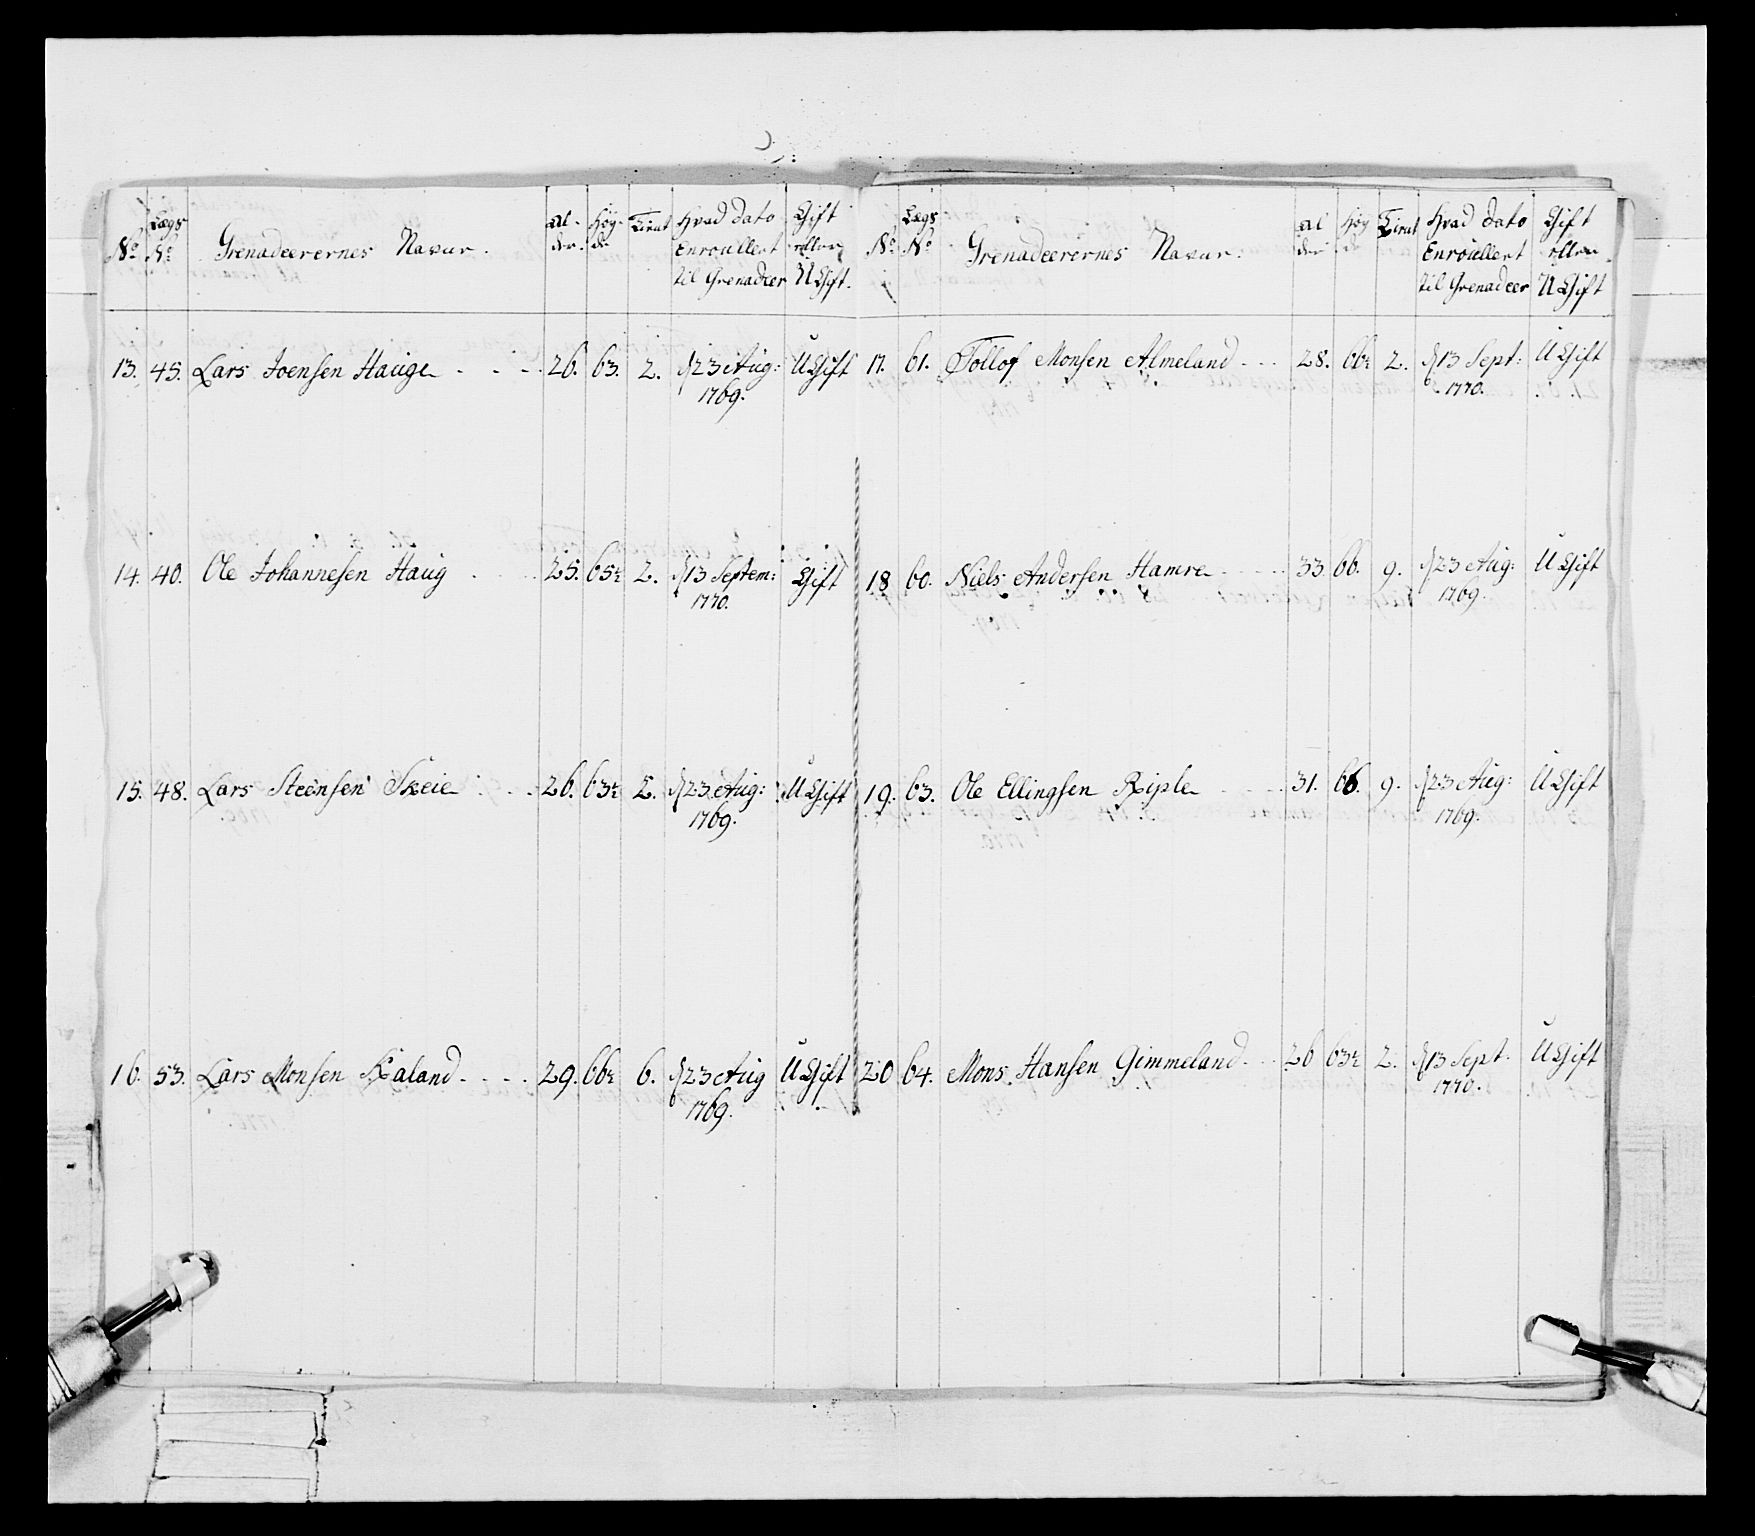 No Lægs No Grenadeerernes Navne. Al-der. Høg-de Tient Hvad dato Enroullert til Grenadeer Gift eller UGift.
13. 45. Lars Joensen Hauge - - - 26. 63. 2. d 23 Aug: 1769. UGift
14. 40. Ole Johannesen Haug 25. 65½ 2. d 13 Septem: 1770. Gift
15. 48. Lars Steensen Skeie 26. 63½ 2. d 23 Aug: 1769. UGift
16. 53. Lars Monsen Kaland - - - - 29. 66½ 6. d 23 Aug 1769. UGift
No Lægs No Grenadeerernes Navne. Al der Høg de Tient Hvad dato Enroullert til Grenadeer Gift eller UGift
17. 61. Tollof Monsen Almeland - - - 28. 66½ 2. d 13 Sept: 1770. UGift
18 60. Niels Andersen Hamre - - - - 33 66. 9. d 23 Aug: 1769. UGift
19. 63. Ole Ellingsen Riple - - - - 31. 66. 9. d 23 Aug: 1769. UGift
20 64. Mons Hansen Gimmeland - - - 26 63½ 2. d 13 Sept. 1770. UGift